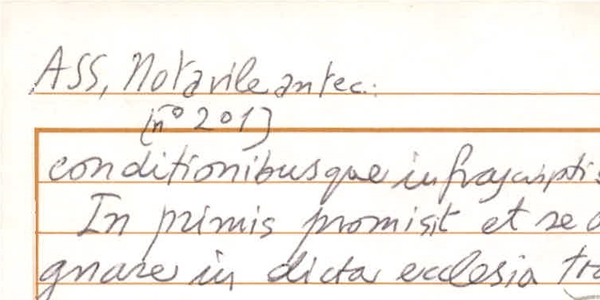 ASS, Notarile antec.:
[n° 201]
conditionibusque infrascriptis
In primis promisit et se
gnare in dicta ecclesia